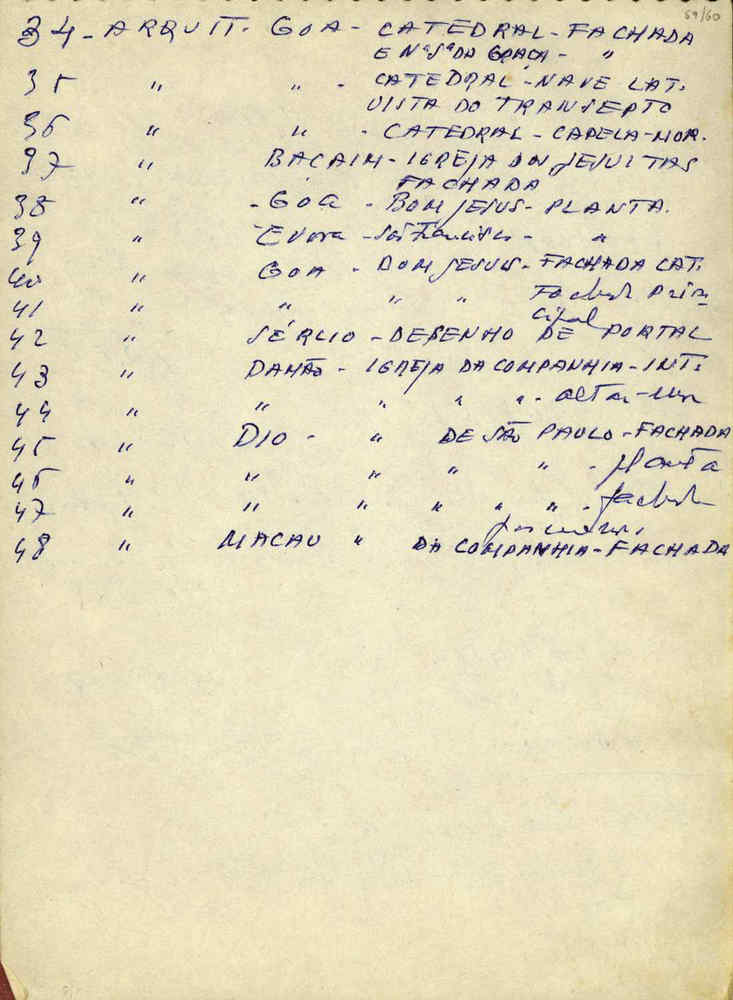 59/60
34 - ARQUIT. GOA - CATEDRAL - FACHADA
E Nª Sª DA GRAÇA - "
35 " " - CATEDRAL - NAVE LAT.
VISTA DO TRANSEPTO
36 " " - CATEDRAL - CAPELA-MOR.
37 " BACAIM - IGREJA DOS JESUITAS
FACHADA
38 " - GOA - BOM JESUS - PLANTA.
39 " Evora - São Francisco - "
40 " GOA - BOM JESUS - FACHADA LAT.
41 " " " " Fachada prin
cipal
42 " SÉRLIO - DESENHO DE PORTAL
43 " DAMÃO - IGREJA DA COMPANHIA - INT.
44 " " " " " - altar-mor
45 " DIO - " DE SÃO PAULO - FACHADA
46 " " " " " - planta
47 " " " " " " - fachada
48 " MACAU " DA COMPANHIA - FACHADA